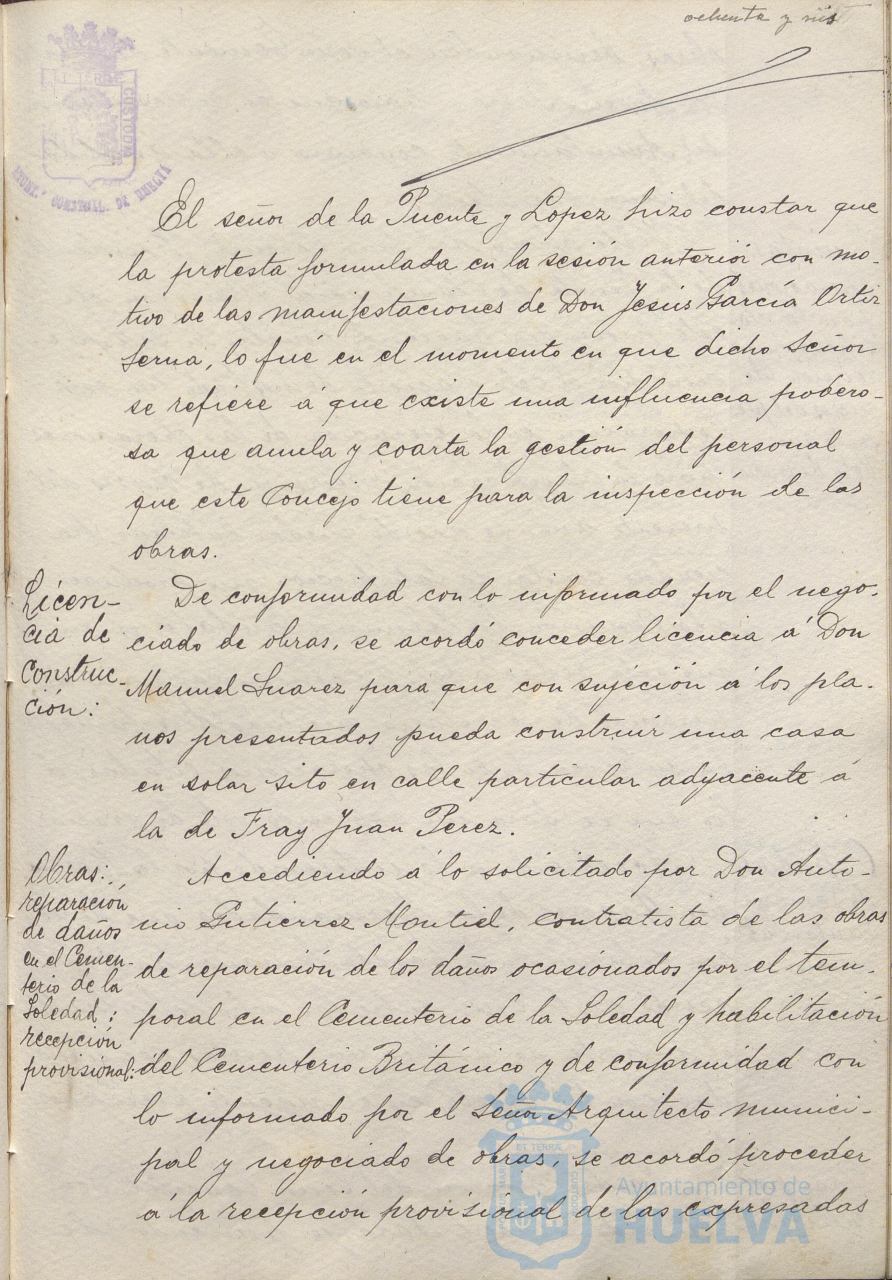 ochenta y seis
EL TERRE
CUSTODIA
AYUNT.º CONSTNAL. DE HUELVA
El señor de la Puente y Lopez hizo constar que
la protesta formulada en la sesión anterior con mo-
tivo de las manifestaciones de Don Jesús García Ortiz
Serna, lo fué en el momento en que dicho Señor
se refiere á que existe una influencia podero-
sa que anula y coarta la gestión del personal
que este Concejo tiene para la inspección de las
obras.
Licen-
cia de
Construc-
ción:
De conformidad con lo informado por el nego-
ciado de obras, se acordó conceder licencia á Don
Manuel Suarez para que con sujeción á los pla-
nos presentados pueda construir una casa
en solar sito en calle particular adyacente á
la de Fray Juan Perez.
Obras:
reparación
de daños
en el Cemen-
terio de la
Soledad:
recepción
provisional:
Accediendo á lo solicitado por Don Anto-
nio Gutierrez Montiel, contratista de las obras
de reparación de los daños ocasionados por el tem-
poral en el Cementerio de la Soledad y habilitación
del Cementerio Británico y de conformidad con
lo informado por el Señor Arquitecto munici-
pal y negociado de obras, se acordó proceder
á la recepción provisional de las expresadas
Ayuntamiento de
HUELVA